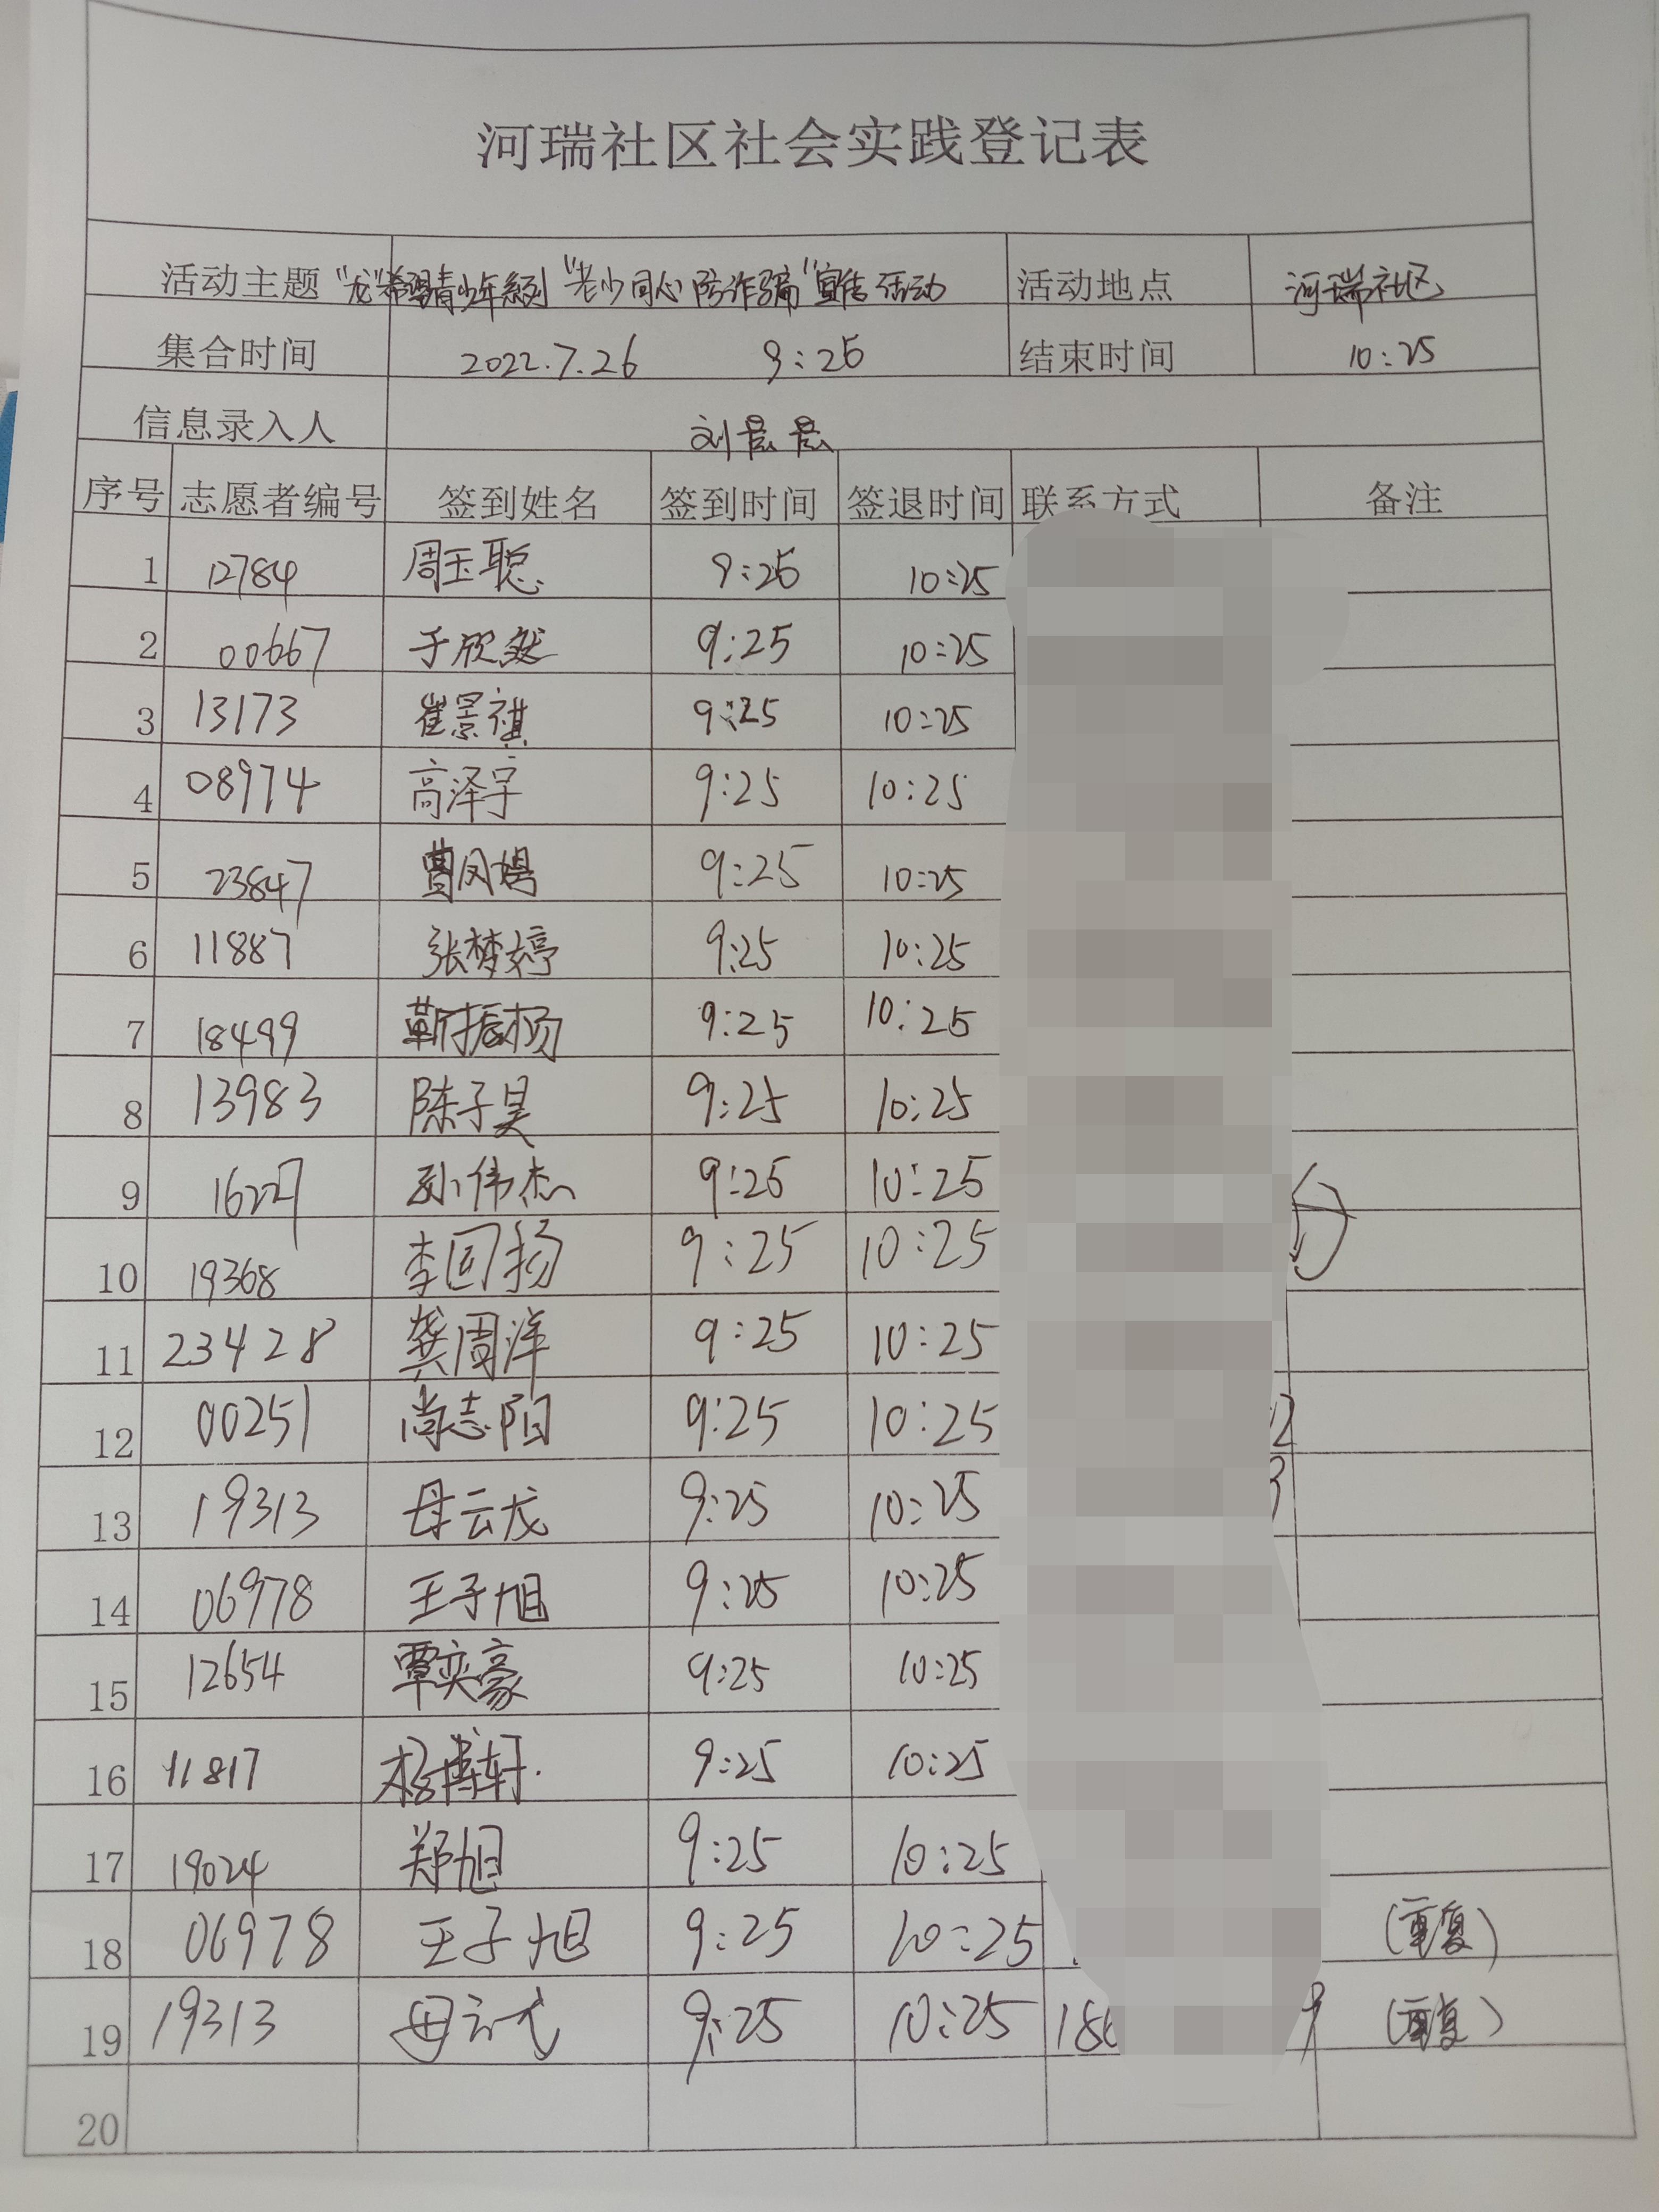 河瑞社区社会实践登记表
活动主题 "龙"希望青少年系列"老少同心防诈骗"宣传活动 活动地点 河瑞社区
集合时间 2022.7.26 9:25 结束时间 10:25
信息录入人 刘
序号 志愿者编号 签到姓名 签到时间 签退时间 联系方式 备注
1 12784 周玉聪 9:25 10:25
2 00667 于欣然 9:25 10:25
3 13173 崔景祺 9:25 10:25
4 08974 高泽宇 9:25 10:25
5 23847 曹凤娟 9:25 10:25
6 11887 张梦婷 9:25 10:25
7 18499 靳振杨 9:25 10:25
8 13983 陈子昊 9:25 10:25
9 16227 孙伟杰 9:25 10:25
10 19368 李回扬 9:25 10:25
11 23428 龚周洋 9:25 10:25
12 00251 尚志阳 9:25 10:25
13 19313 母云龙 9:25 10:25
14 06978 王子旭 9:25 10:25
15 12654 覃奕豪 9:25 10:25
16 11817 杨博轩 9:25 10:25
17 19024 郑旭 9:25 10:25
18 06978 王子旭 9:25 10:25 (重复)
19 19313 母云龙 9:25 10:25 (重复)
20